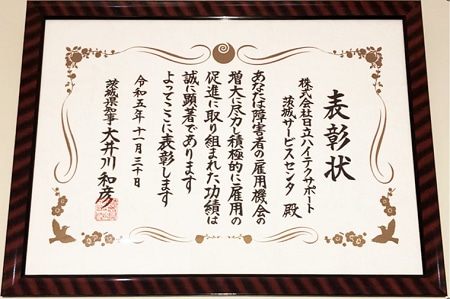 表彰状
株式会社日立ハイテクサポート
茨城サービスセンタ 殿
あなたは障害者の雇用機会の
増大に尽力し積極的に雇用の
促進に取り組まれた功績は
誠に顕著であります
よってここに表彰します
令和五年十一月三十日
茨城県知事 大井川 和彦